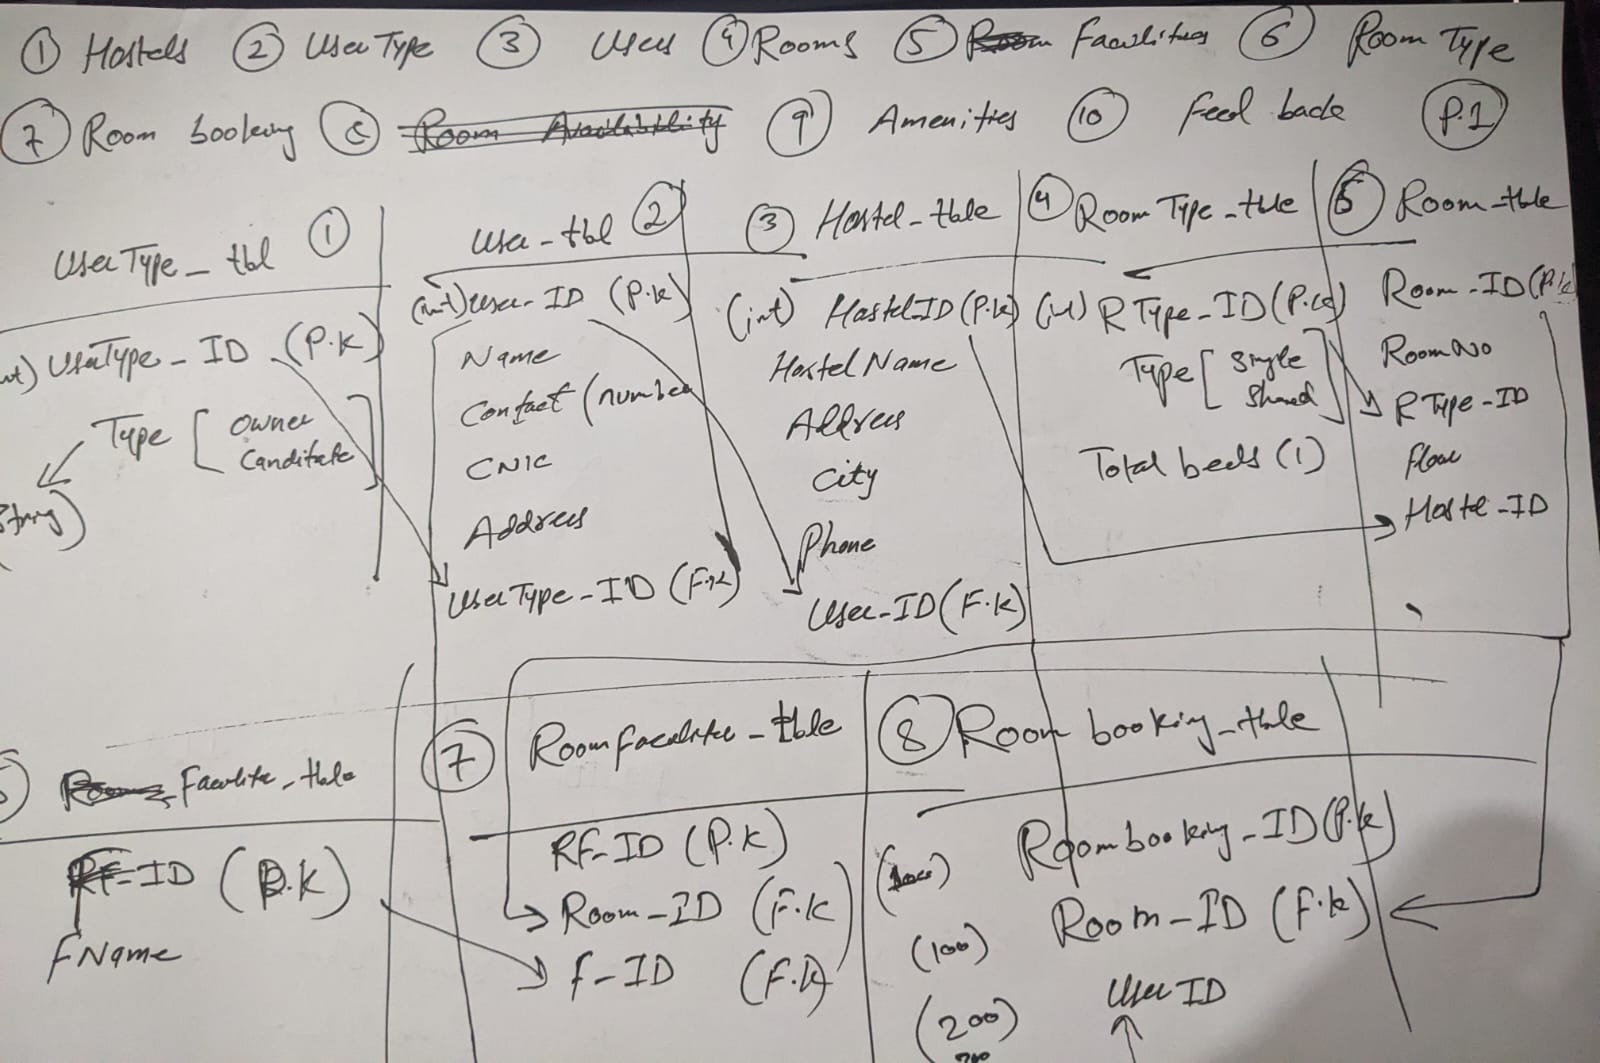 ① Hostels ② UserType ③ Users ④ Rooms ⑤ Room Facilities ⑥ Room Type
⑦ Room booking Room Availability ⑨ Amenities ⑩ Feed back P.1
UserType_tbl ①
UserType_ID (P.K)
Type [ Owner
Canditate ]
String)
User_tbl ②
(int) User_ID (P.k)
Name
Contact (number
CNIC
Address
UserType_ID (F.k)
③ Hostel_tble
(int) HostelID (P.k)
Hostel Name
Address
City
Phone
User_ID (F.k)
④ Room Type_tble
(int) R Type_ID (P.k)
Type [ Single
Shared ]
Total beds (1)
⑤ Room_tble
Room_ID (P.k)
Room No
R Type-ID
floor
Hostel-ID
Room Facilite_table
F-ID (P.K)
FName
⑦ Room facilites_tble
RF-ID (P.K)
Room_ID (F.K
f-ID (F.k)
⑧ Room booking_tble
Roombooking_ID (P.k)
Room-ID (F.k)
(100)
User ID
(200)